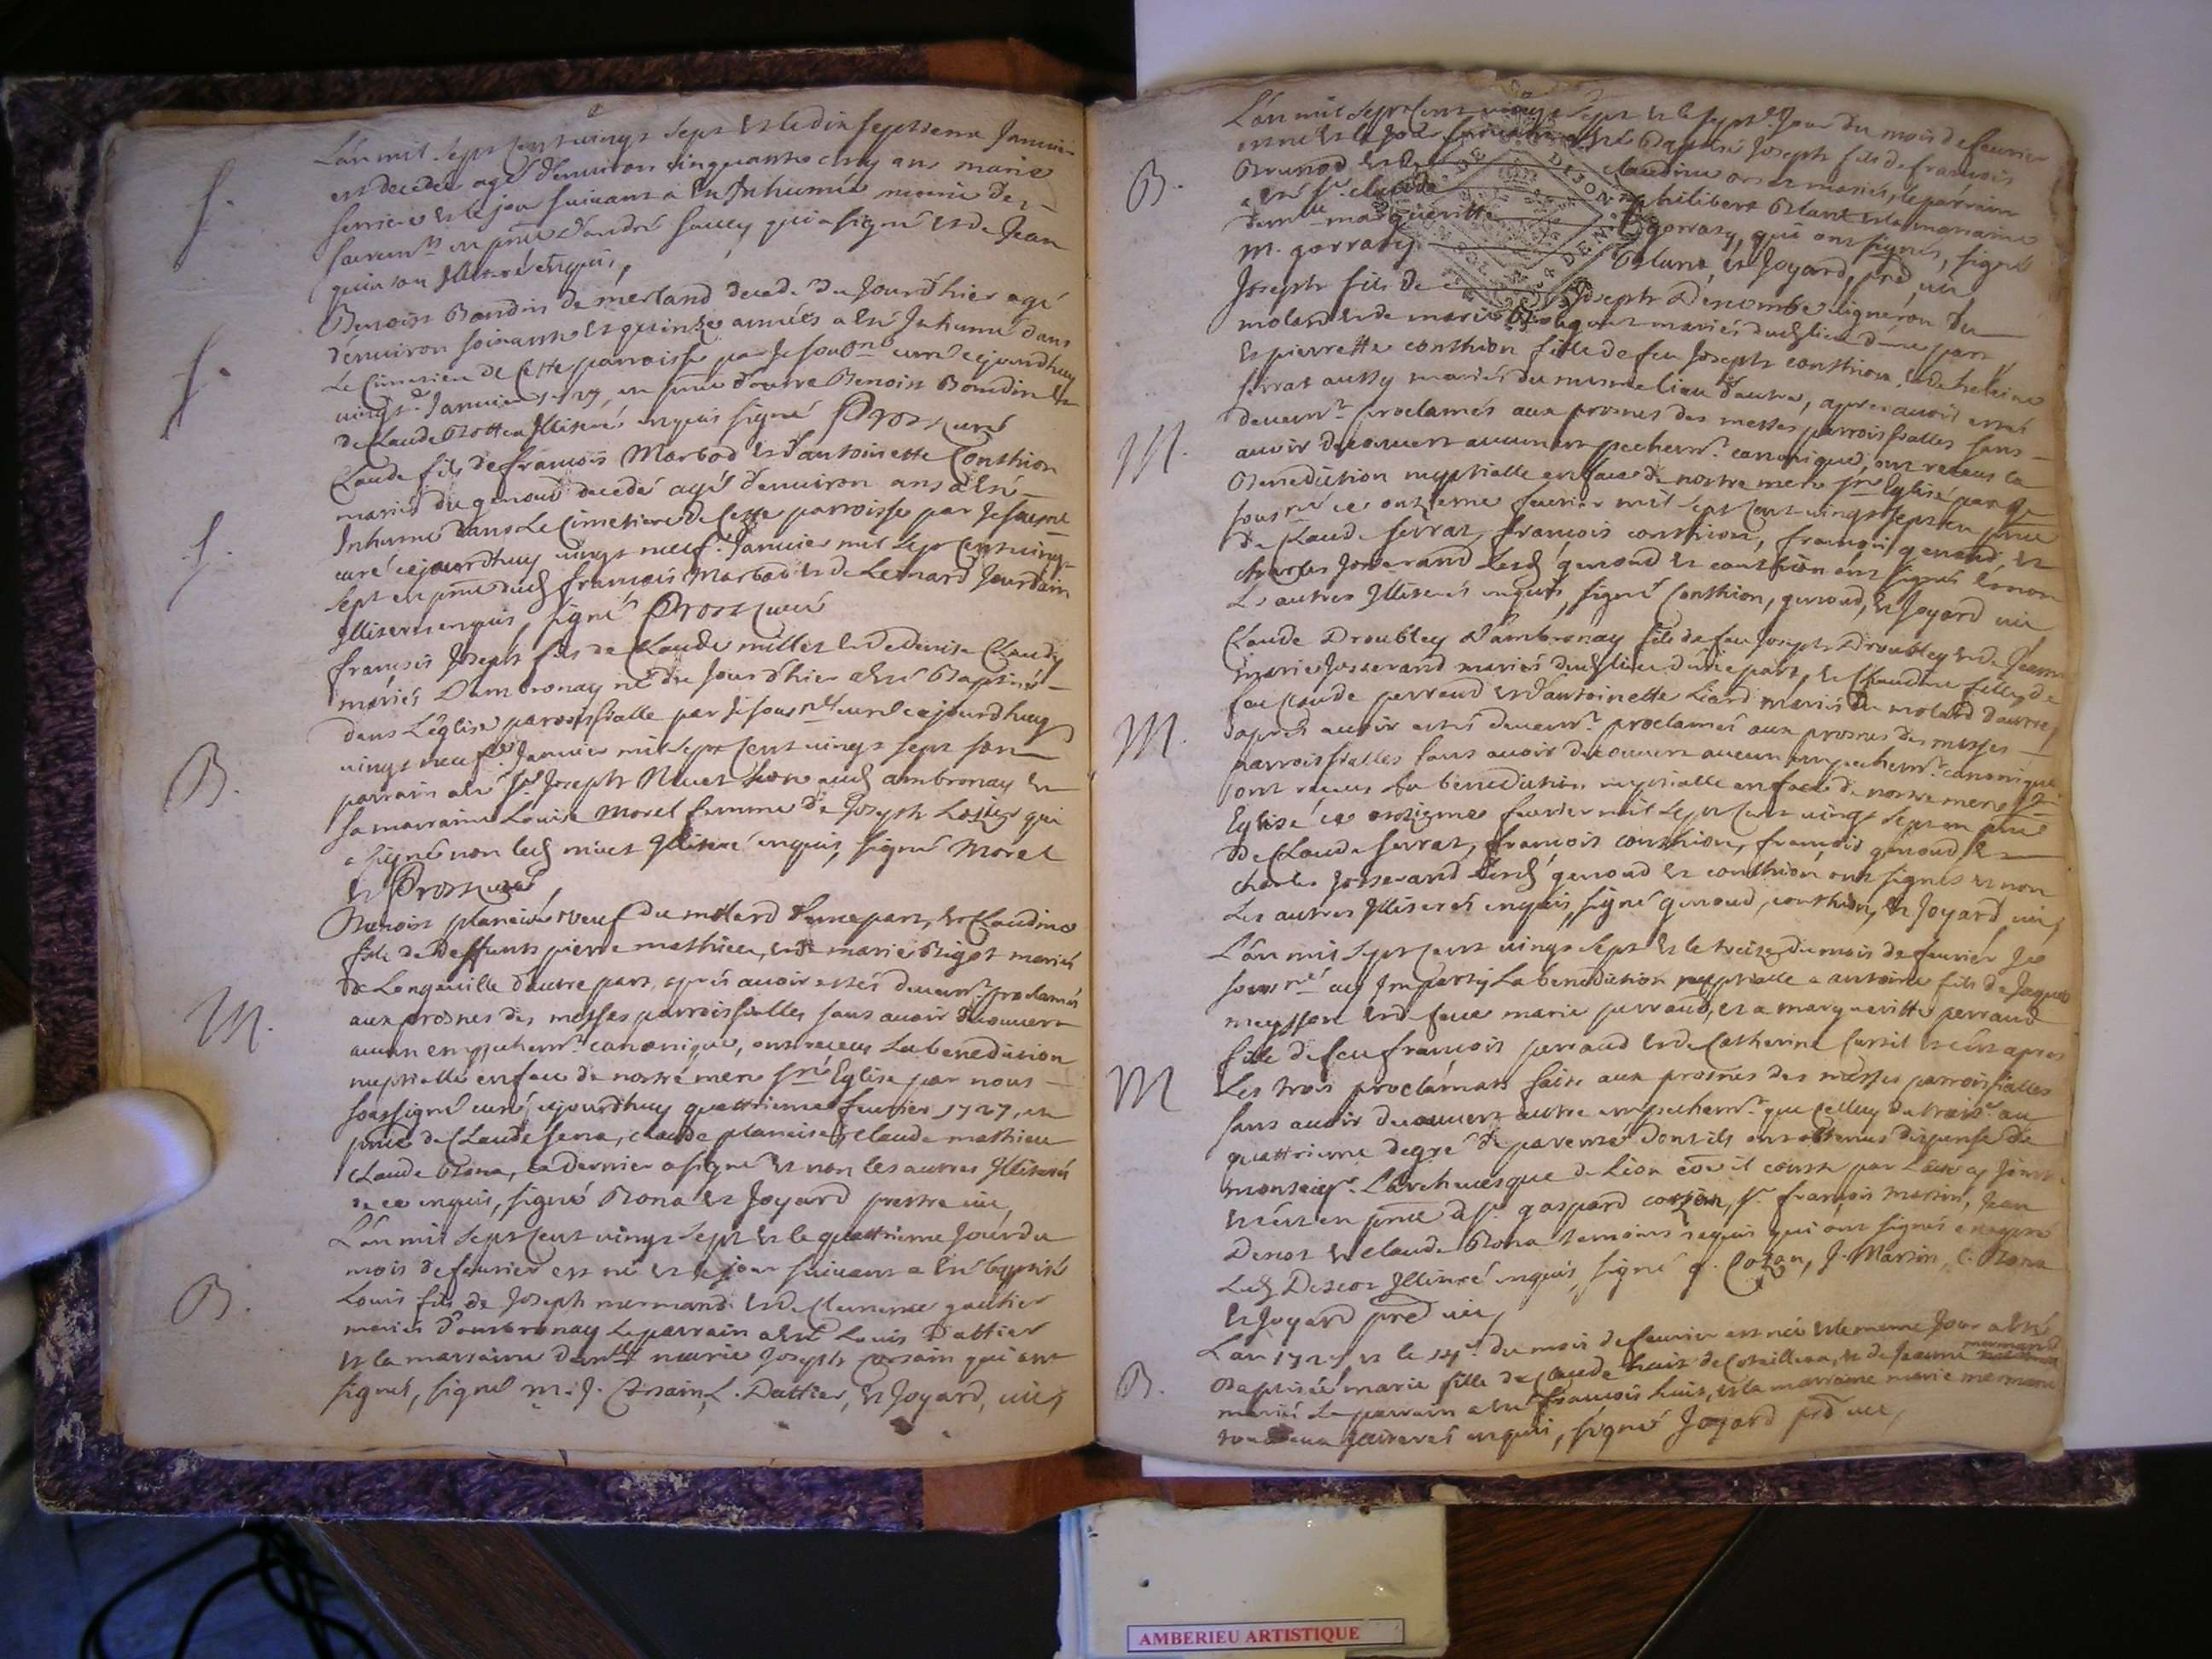 L'an mil sept cent vingt sept et le dix septieme Janvier
est decedée agé d'environ cinquante cinq ans marie
et le jour suivant a été Inhumée munie des
sacrem.ts en pnce d'andré qui a signé et de Jean
Illiteré enquis,
f.
Benoist Boudin de merland decedé du Jourdhier agé
d'environ soixante et quinze années a été Inhumé dans
Le Cimetiere de Cette parroisse par Je soubné curé cejourdhuy
vingt Janvier 1727, en pnce d'autre Benoist Boudin et
de Claude Illiterés enquis signé curé
f.
Claude fils de francois Marbod et d'antoinette Conthion
mariés du genoud decedé agé d'environ ans a été
Inhumé dans Le Cimetiere de Cette parroisse par Je
curé cejourdhuy vingt neuf Janvier mil sept Cent vingt
sept en pnce dud francois Marbod et de Leonard Jourdain
Illiteres enquis, signé curé
f.
francois Joseph fils de Claude millet et de denise Claudy
mariés D'ambronay né du Jourdhier a été Baptisé
dans L'église parroissialle par Je curé cejourdhuy
vingt neuf Janvier mil sept Cent vingt sept son
parrain a été Sr Joseph aud ambronay et
sa marraine Louise Morel femme de Joseph qui
a signé non led Illiteré enquis, signé Morel
et curé,
B.
Benoist veuf du molard d'une part, et Claudine
fille de deffunts pierre mathieu, et de marie Bigot mariés
de Longeville d'autre part, après avoir estés deuem.t proclamés
aux prosnes des messes parroissialles sans avoir decouvert
aucun empechem.t canonique, ont receus La benediction
nuptialle en face de nostre mere ste Eglise par nous
soussigné curé cejourdhuy quattrieme fevrier 1727, en
pnce de Claude Serra, claude claude mathieu
Claude Bona, ce dernier a signé et non les autres Illiterés
de ce enquis, signé Bona et Joyard prestre vic,
M.
L'an mil sept Cent vingt sept et le quattrieme Jour du
mois de fevrier est né et le jour suivant a été baptisé
Louis fils de Joseph mermand et de Clemence gautier
mariés d'ambronay Le parrain a été Louis Dattier
et la marraine dem.lle marie Joseph qui ont
signés, signé m. J. L. Dattier, et Joyard, vic,
B.
L'an mil sept Cent vingt sept et le sept.e Jour du mois de fevrier
est né et le jour suivant a été Baptisé Joseph fils de francois
Brunod et de claudine mariés, le parrain
a été Sr. claude philibert Blanc et la marraine
dem.lle marguerite gorraty, qui ont signés, signé
m. gorraty Blanc, et Joyard, pred vic,
B.
Joseph fils de Joseph Desnombe vigneron du
molard et de marie mariés dud lieu d'une part
Et pierrette conthion fille de feu Joseph conthion, et de heleine
ferrat aussy mariés du mesme lieu d'autre, apres avoir estés
deuem.t proclamés aux prosnes des messes parroissialles sans
avoir decouvert aucun empechem.t canonique, ont receus la
Benediction nuptialle en face de nostre mere ste Eglise par
ce onzieme fevrier mil sept Cent vingt sept en pnce
de Claude ferrat, francois conthion, francois genoud, et
charles Josserand Lesd genoud et conthion ont signés et non
Les autres Illiterés enquis, signé Conthion, genoud, et Joyard vic
M.
Claude Droubley d'ambronay fils de feu Joseph Droubley et de Jeanne
marie Josserand mariés dud lieu d'une part, et Claudine fille de
feu Claude perraud et d'antoinette Liard mariés du molard d'autre,
apres avoir estés deuem.t proclamés aux prosnes des messes
parroissialles sans avoir decouvert aucun empechem.t canonique
ont receus La benediction nuptialle en face de nostre mere ste
Eglise ce onzieme fevrier mil sept Cent vingt sept en pnce
de Claude ferrat, francois conthion, francois genoud, et
charles Josserand Lesd genoud et conthion ont signés et non
Les autres Illiterés enquis, signé genoud, conthion, et Joyard vic,
M.
L'an mil sept cent vingt sept et le treize du mois de fevrier Je
ay Imparty La benediction nuptialle a antoine fils de Jaques
meysson et de feue marie perraud, et a marguerite perraud
fille de feu francois perraud et de Catherine et ce apres
Les trois proclamats faits aux prosnes des messes parroissialles
sans avoir decouvert autre empechem.t que celluy du trois.e au
quattrieme degré de parenté dont ils ont obtenus dispense de
monseig.r L'archevesque de Lion coe il conste par
et ce en pnce de Sr. gaspard cozon, Sr. francois Martin, Jean
Descot et claude Bona temoins requis qui ont signés excepté
Led Descot Illiteré enquis, signé g. Cozon, f. Martin, C. Bona
et Joyard pred vic,
M
L'an 1727 et le 14e. du mois de fevrier est née et le meme Jour a été
Baptisée marie fille de claude huit de et de Jeanne mermand
mariés Le parrain a été francois huit, et la marraine marie mermand
tous deux Illiterés enquis, signé Joyard pred vic,
B.
AMBERIEU ARTISTIQUE